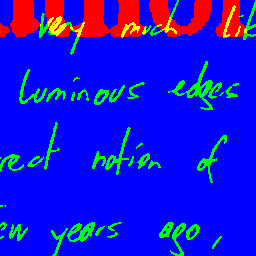 very much
luminous edges
notion of
years ago,